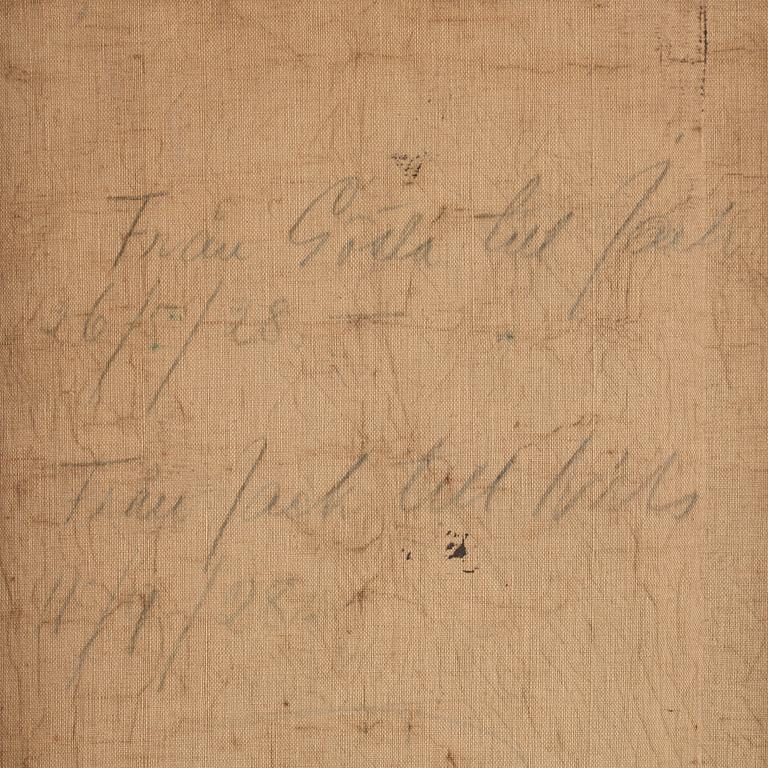 Från Gösta till Jack
26/5/28
Från Jack till Nils